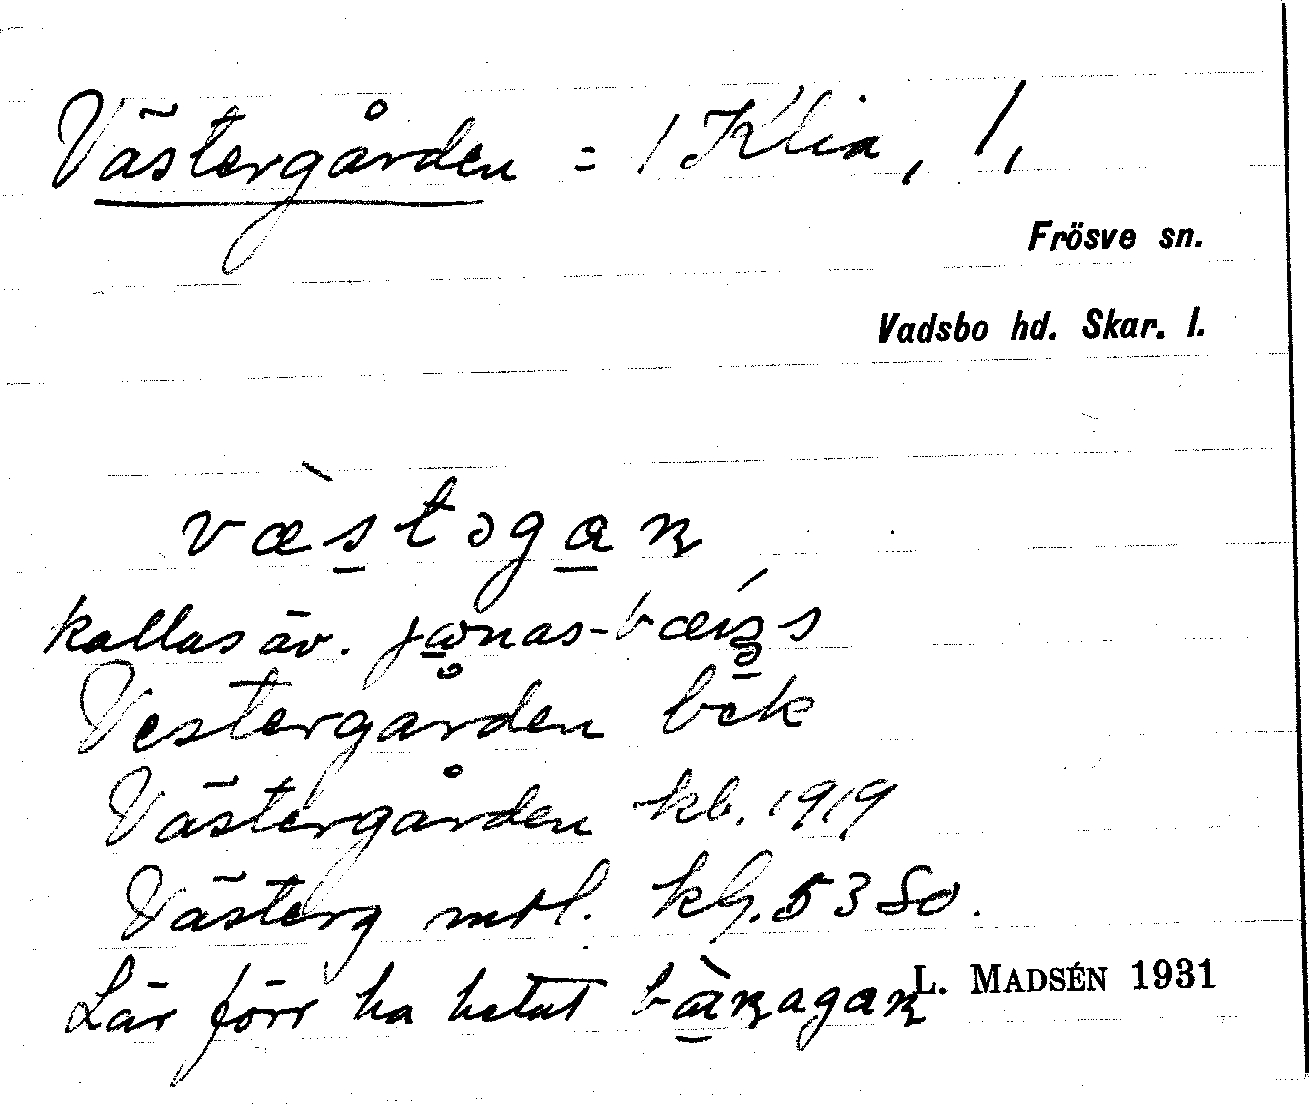 Västergården = 1 Klia, 1,
Frösve sn.
Vadsbo hd. Skar. l.
væ̀stəgaɳ
kallas äv. jɷnas-bærs
Vestergården bek
Västergården kb. 1919
Västerg mtl. kf. 5380.
Lär förr ha hetat bàɳagaɳ
L. MADSÉN 1931